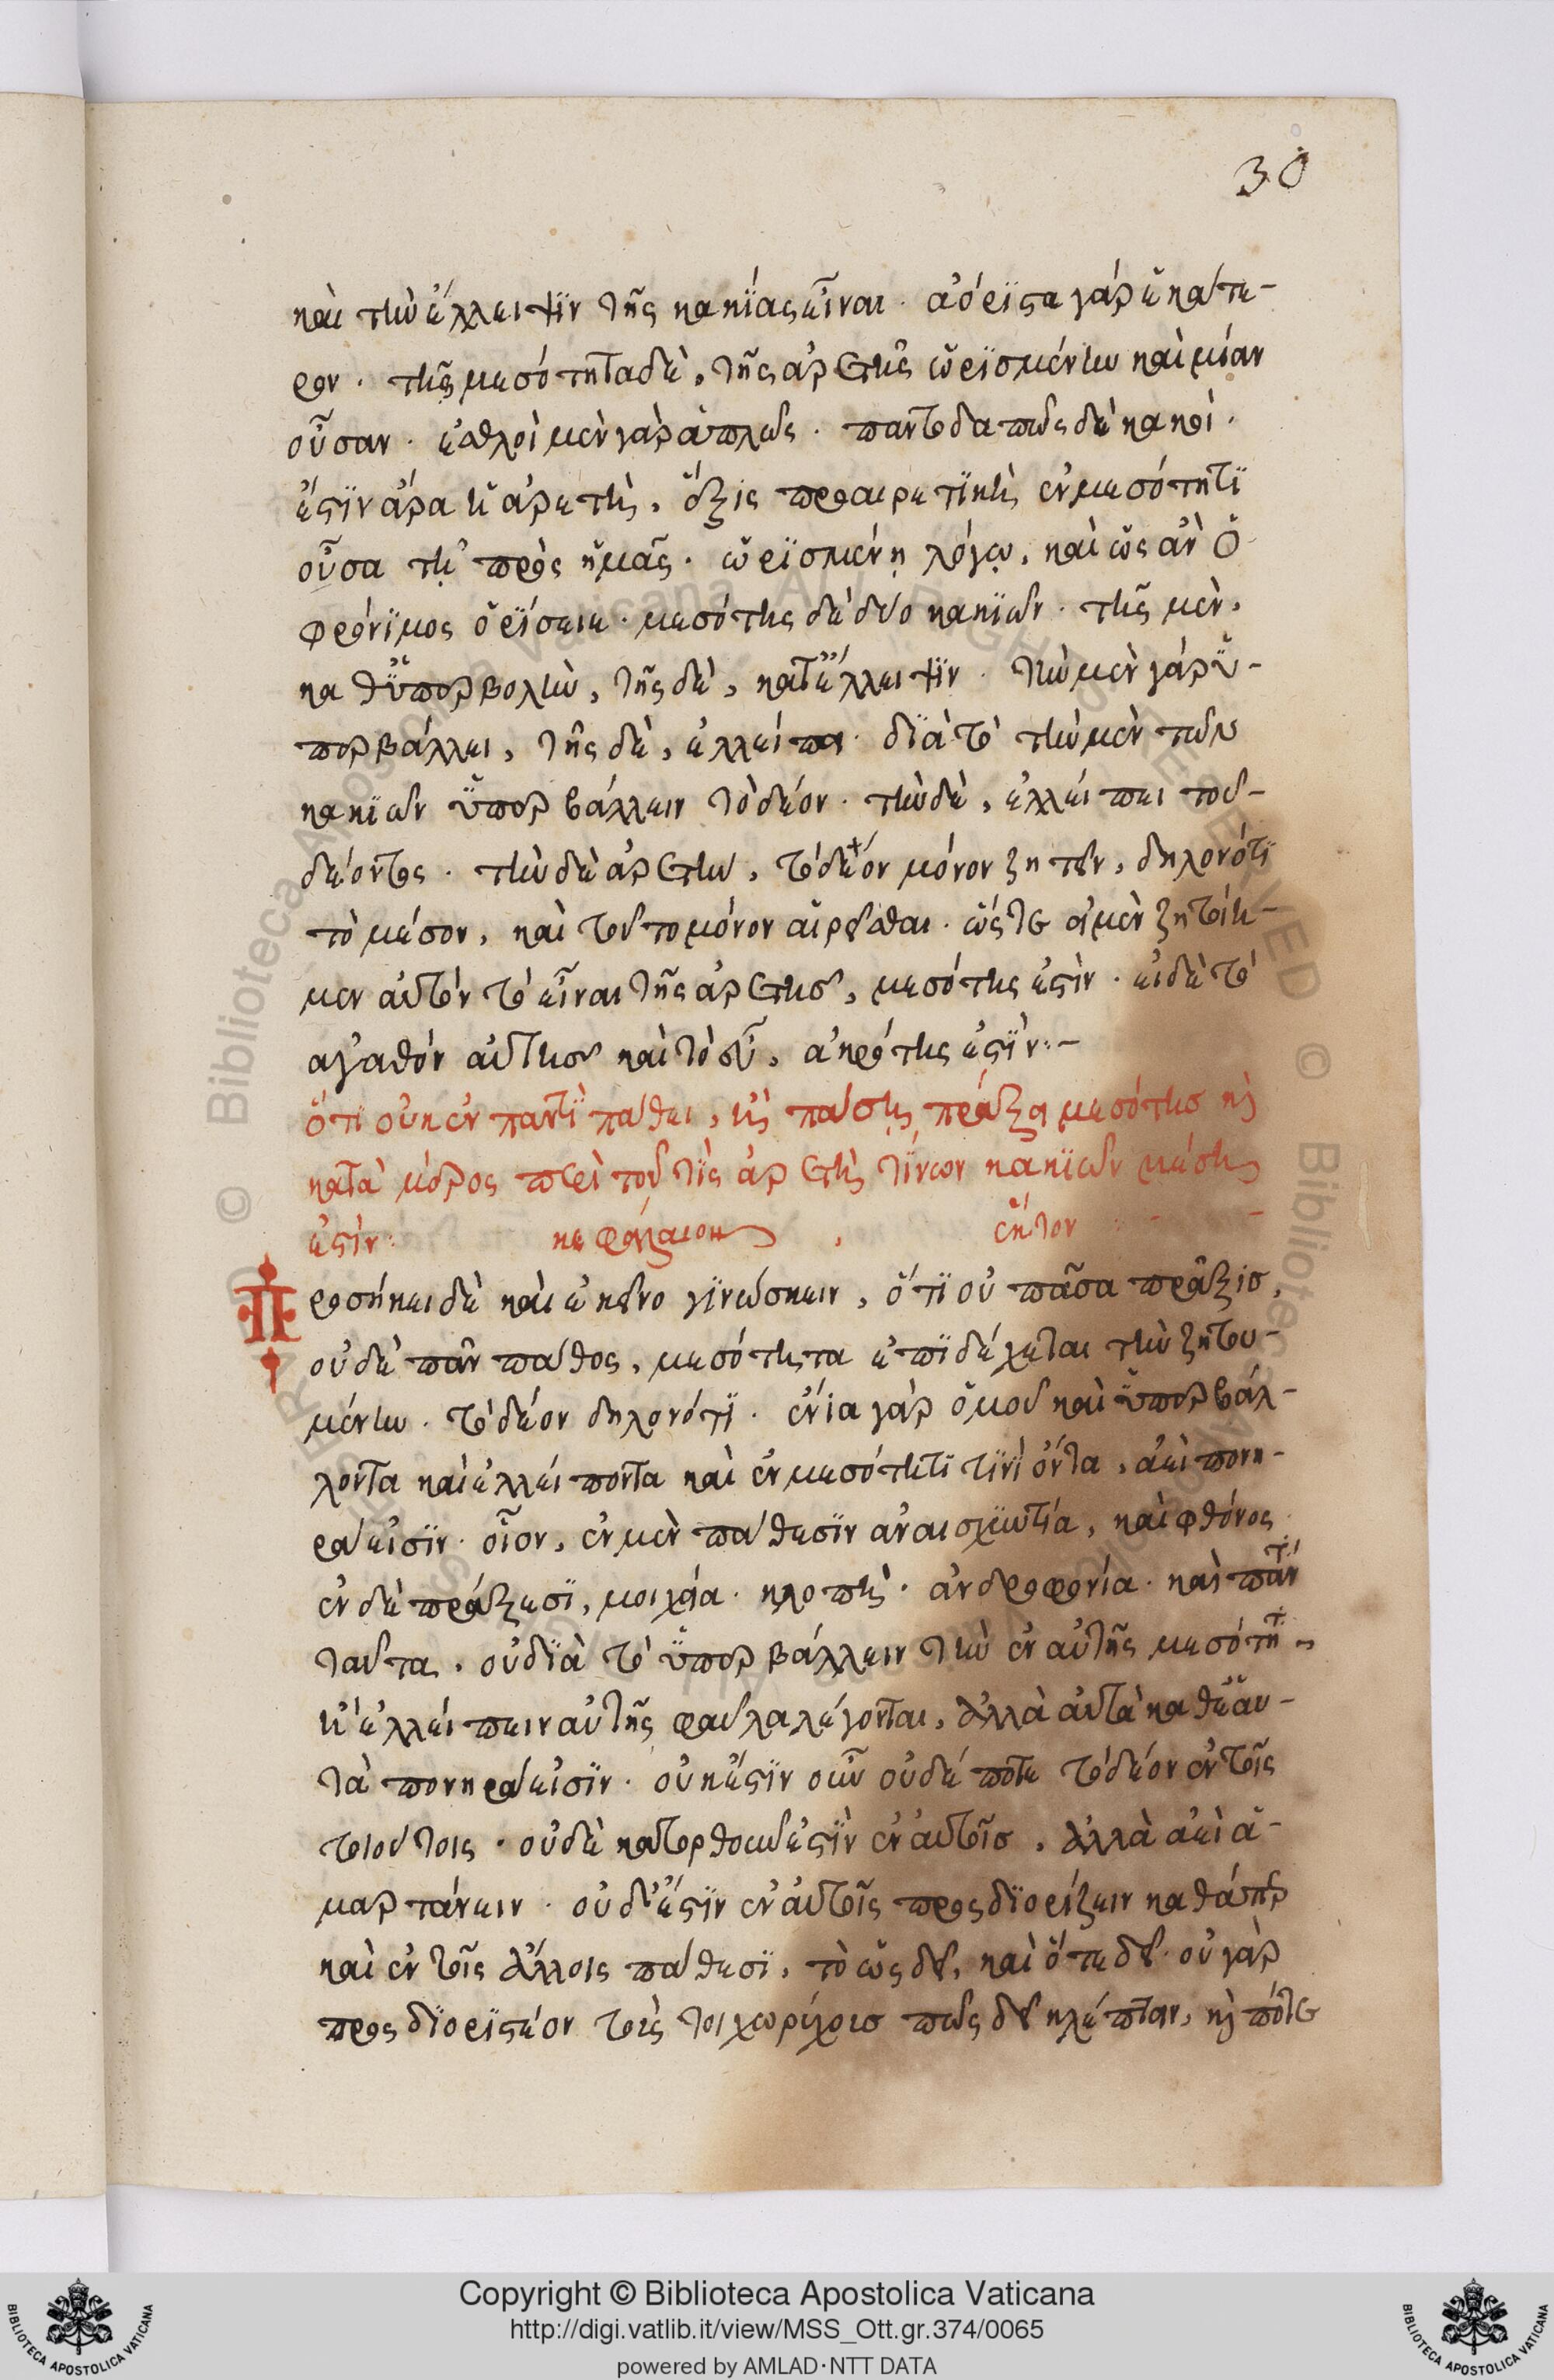 30
καὶ τὴν ἔλλειψϊν τῆς κακΐας εἶναι · ἀόρϊστα γάρ ἑκάτε-
ρον · τῆς μεσότητα δὲ, τῆς ἀρετῆς ὡρϊσμένην καὶ μίαν
οὖσαν · ἐσθλοὶ μὲν γὰρ ἁπλῶς · παντοδαπῶς δὲ κακοὶ ·
ἔστϊν ἄρα ἡ ἀρετὴ, ἕξις προαιρετϊκὴ ἐν μεσότητϊ
οὖσα τῇ πρὸς ἡμᾶς · ὡρϊσμένῃ λόγῳ, καὶ ὡς ἂν ὁ
φρόνϊμος ὁρΐσειε · μεσότης δὲ δύο κακϊῶν · τῆς μὲν,
καθ' ὑπερβολὴν, τῆς δὲ, κατ' ἔλλειψϊν · τὴν μὲν γάρ ὑ-
περβάλλει, τῆς δὲ, ἐλλείπει · δϊὰ τὸ τὴν μὲν τῶν
κακϊῶν ὑπερβάλλειν τὸ δέον · τὴν δὲ, ἐλλείπει τοῦ-
δέοντος · τὴν δὲ ἀρετὴν, τὸ δέον μόνον ζητεῖν, δηλονότϊ
τὸ μέσον, καὶ τοῦτο μόνον αἱρεῖσθαι · ὥστε εἰ μὲν ζητοίη-
μεν αὐτὸν τὸ εἶναι τῆς ἀρετῆσ, μεσότης ἐστὶν · εἰ δὲ τὸ
αγαθὸν αὐτῆσ καὶ τὸ εὖ, ἀκρότης ἐστϊν :-
ὅτϊ οὐκ ἐν παντϊ πάθει, ἢ πάσῃ πράξει μεσότησ κ̀
κατὰ μέρος περὶ τοῦ τΐς ἀρετὴ τΐνων κακϊῶν μέση
ἐστϊν : κεφάλαιον , ἕκτον : -
Προσήκει δὲ καὶ ἐκεῖνο γϊνώσκειν, ὅτϊ οὐ πᾶσα πρᾶξισ,
οὐδὲ πᾶν πάθος, μεσότητα ἐπϊδέχεται τὴν ζητου-
μένην · τὸ δέον δηλονότϊ · ἔνια γὰρ ὁμοῦ καὶ ὑπερβάλ-
λοντα καὶ ἐλλείποντα καὶ ἐν μεσότητϊ τϊνὶ ὄντα, ἀεὶ πονη-
ρά εἰσϊν · οἷον, ἐν μὲν πάθεσϊν ἀναισχυντία, καὶ φθόνος ·
ἐν δὲ πράξεσϊ, μοιχεία · κλοπὴ · ἀνδροφονία · καὶ πάντ
ταῦτα, οὐ δϊὰ τὸ ὑπερβάλλειν τὴν ἐν αὐτῆς μεσότητ
ἢ ἐλλείπειν αὐτῆς φαῦλα λέγονται, ἀλλὰ αὐτὰ καθ' ἑαυ-
τὰ πονηρά εἰσϊν · οὐκ ἔστϊν οὖν οὐδέποτε τὸ δέον ἐν τοῖς
τοιούτοις · οὐδὲ κατορθοῦν ἐστϊν ἐν αὐτοῖσ, ἀλλὰ ἀεὶ ἁ-
μαρτάνειν · οὐδ' ἔστϊν ἐν αὐτοῖς προςδϊορίζειν καθάπερ
καὶ ἐν τοῖς ἄλλοις πάθεσϊ, τὸ ὡς δεῖ, καὶ ὅτε δεῖ · οὐ γὰρ
προςδϊορϊστέον τοὺς τοιχωρύχουσ πῶς δεῖ κλέπτειν, κ̀ πότε
Copyright © Biblioteca Apostolica Vaticana
http://digi.vatlib.it/view/MSS_Ott.gr.374/0065
powered by AMLAD·NTT DATA